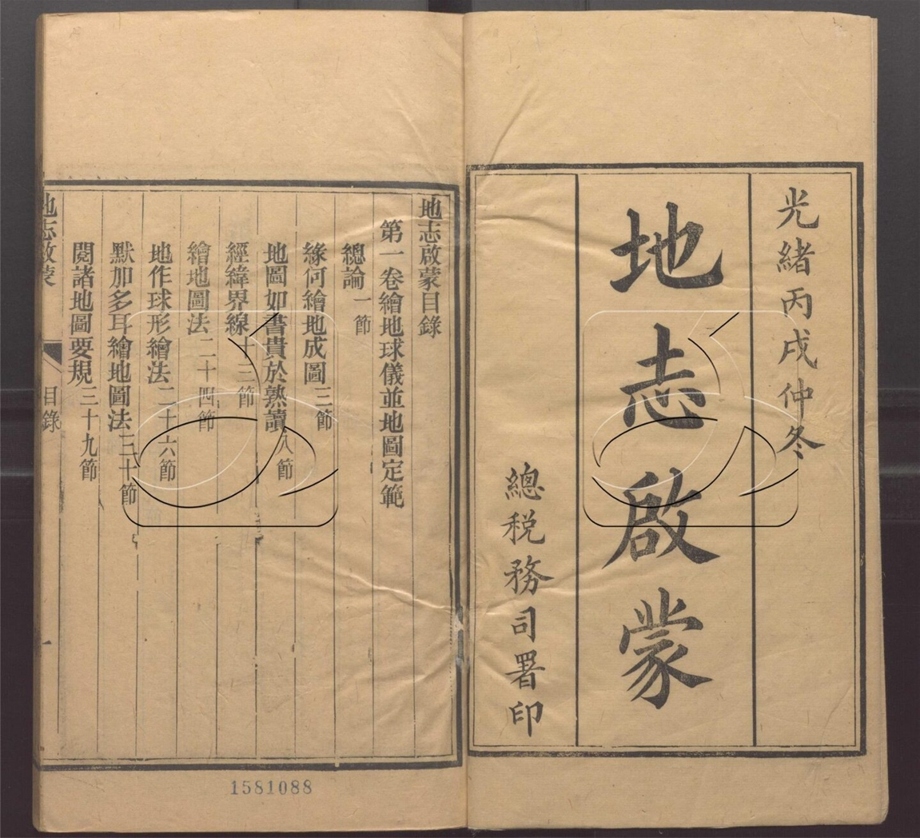 光緒丙戌仲冬
地志啟蒙
總税務司署印
地志啟蒙目錄
第一卷繪地球儀並地圖定範
總論一節
緣何繪地成圖三節
地圖如書貴於熟讀八節
經緯界線十三節
繪地圖法二十四節
地作球形繪法二十六節
默加多耳繪地圖法三十節
閱諸地圖要規三十九節
地志啟蒙
目錄
一
1581088